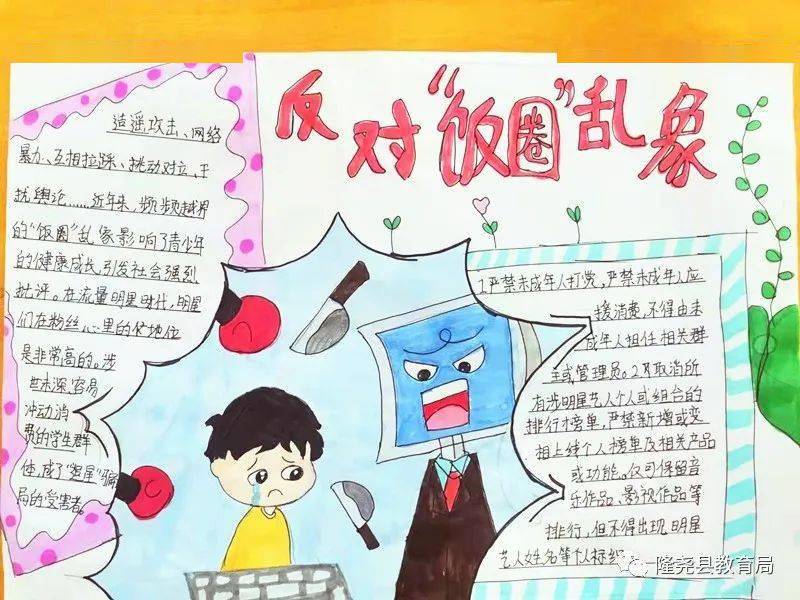 反对“饭圈”乱象
造谣攻击、网络
暴力、互相拉踩、挑动对立、干
扰舆论……近年来,频频越界
的“饭圈”乱象影响了青少年
的健康成长,引发社会强烈
批评。在流量明星时代,明星
们在粉丝心里的
是非常高的。涉
世未深,容易
冲动消
费的学生群
体,成了“追星”骗
局的受害者。
1.严禁未成年人打赏,严禁未成年人应
援消费,不得由未
成年人担任相关群
主或管理员。2.取消所
有涉明星艺人个人或组合的
排行榜单,严禁新增或变
相上线个人榜单及相关产品
或功能。仅可保留音
乐作品、影视作品等
排行,但不得出现明星
艺人姓名等个人标
隆尧县教育局